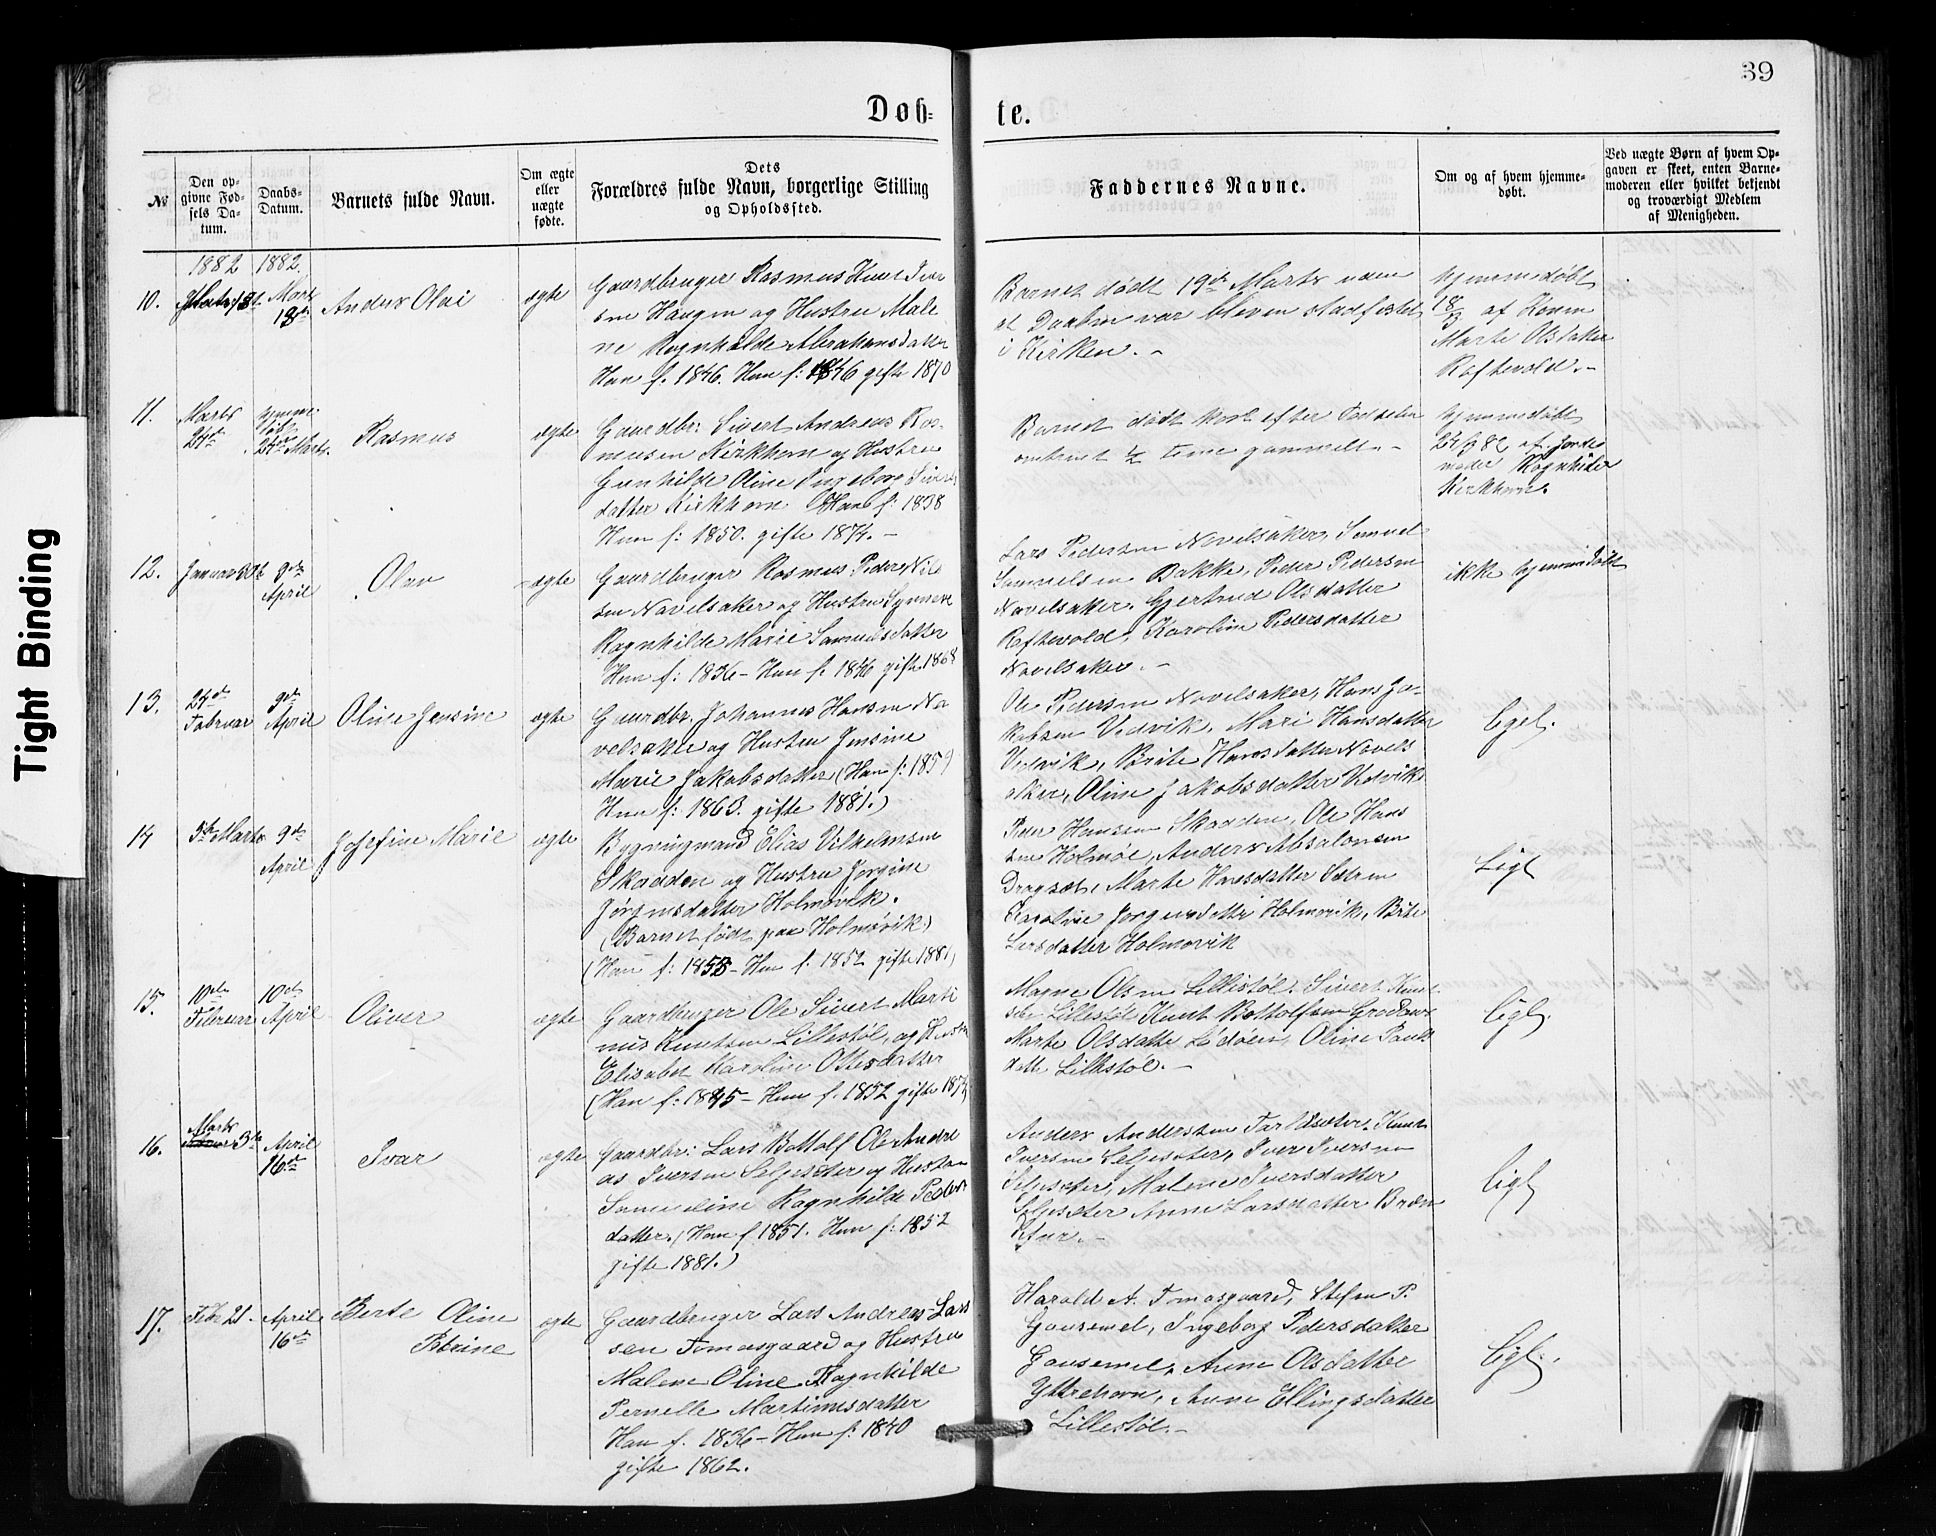 39
Døb-
te.
№
Den op-
givne Fød-
sels Da-
tum.
Daabs-
Datum.
Barnets fulde Navn.
Om ægte
eller
uægte
fødte.
Dets
Forældres fulde Navn, borgerlige Stilling
og Opholdssted.
Faddernes Navne.
Om og af hvem hjemme-
døbt.
Ved uægte Børn af hvem Op-
gaven er skeet, enten Barne-
moderen eller hvilket bekjendt
og troværdigt Medlem
af Menigheden.
1882 1882.
10.
Marts
18de
Anders Olai
ægte
Gaardbruger Rasmus Knut Iver
sen Haugen og Hustru Male
ne Ragnhilde Abrahamsdatter
Han f. 1846. Hun f: 1846 gifte 1870
Barnet dødt 19de Marts uden
at Daaben var bleven stadfestet
i Kirken. -
hjemmedøbt
18/3 af Konen
Marte Olsdater
Raftevold. -
11.
Marts
24de
hjemme-
døbt
24de Marts.
Rasmus
ægte
Gaardbr: Sivert Andreas Ras-
musen Kirkhorn og Hustru
Gunhilde Oline Ingeborg Siverts
datter Kirkhorn Han f: 1838
Hun f: 1850. gifte 1874. -
Barnet dødt kort efter Fødselen
omtrent 1/2 time gammelt. -
hjemmedøbt
24/3 82 af Jorde
moder Ragnhilde
Kirkhorn.
12.
Januar 30te
9de
April
Olav
ægte
Gaardbruger Rasmus Peder Nil
sen Navelsaker og Hustru Synneve
Ragnhilde Marie Samuelsdatter
Han f: 1836 - Hun f. 1846 gifte 1868
Lars Pedersen Navelsaker, Samuel
Samuelsen Bakke, Peder Pedersen
Navelsaker. Gjertrud Olsdatter
Raftevold, Karoline Pedersdatter
Navelsaker. -
ikke hjemmedøbt
13.
24de
Februar
9de
April
Oline Jensine
ægte
Gaardbr. Johannes Hansen Na
velsaker og Hustru Jensine
Marie Jakobsdatter (Han f: 1859
Hun f: 1863. gifte 1881.)
Ole Pedersen Navelsaker, Hans Ja-
kobsen Vedvik, Mari Hansdatter
Vedvik, Brite Hansdatter Navels
aker, Oline Jakobsdatter Vedvik
Ligel.
14
5te Marts
9de
April
Josefine Marie
ægte
Bygningmand Elias Vilhelmsen
Skadden og Hustru Jorgine
Jørgensdatter Holmøvik.
(Barnet født paa Holmøvik)
(Han f: 1853 - Hun f. 1852 gifte 1881)
Peder Hansen Skadden, Ole Hans
sen Holmøe, Anders Absalonsen
Dragsæt, Marte Hansdatter Sætren
Karoline Jorgensdatter Holmøvik, Brite
Larsdatter Holmøvik
Ligl
15.
10de
Februar
10de
April
Oliver
ægte
Gaardbruger Ole Sivert Marti
nus Knutsen Lillestøl, og Hustru
Elisabet Karoline Ottesdatter
(Han f: 1845 - Hun f. 1852 gifte
Magne Olsen Lillestøl. Sivert Knut
sen Lillestøl Knut Bottolfsen
Marte Olsdatter Lødøen, Oline Pauls
datter Lillestøl. -
Ligl.
16.
Marts
3te
April
16de
Ivar
ægte
Gaardbr: Lars Bottolf Ole Andre
as Iversen Seljesæter og Hustru
Samueline Ragnhilde Peders
datter. (Han f 1851. Hun f: 1852
gifte 1881.)
Anders Andersen Taraldsæter. Knut
Iversen Seljesæter, Iver Iversen
Seljesæter, Malene Iversdatter
Seljesæter Anne Larsdatter
Ligl
17.
Febr 21.
April
16de
Berte Oline
Petrine
ægte
Gaardbruger Lars Andreas Lars
sen Tomasgaard og Hustru
Malene Oline Ragnhilde
Pernelle Martinusdatter
Han f. 1836 - Hun f: 1840
gifte 1862.
Harald A. Tomasgaard, Stefen P.
Gausemel, Ingeborg Pedersdatter
Gausemel, Anne Olsdatter
Yttrehorn, Anne Ellingsdatter
Lillestøl. -
Ligl.
Tight Binding